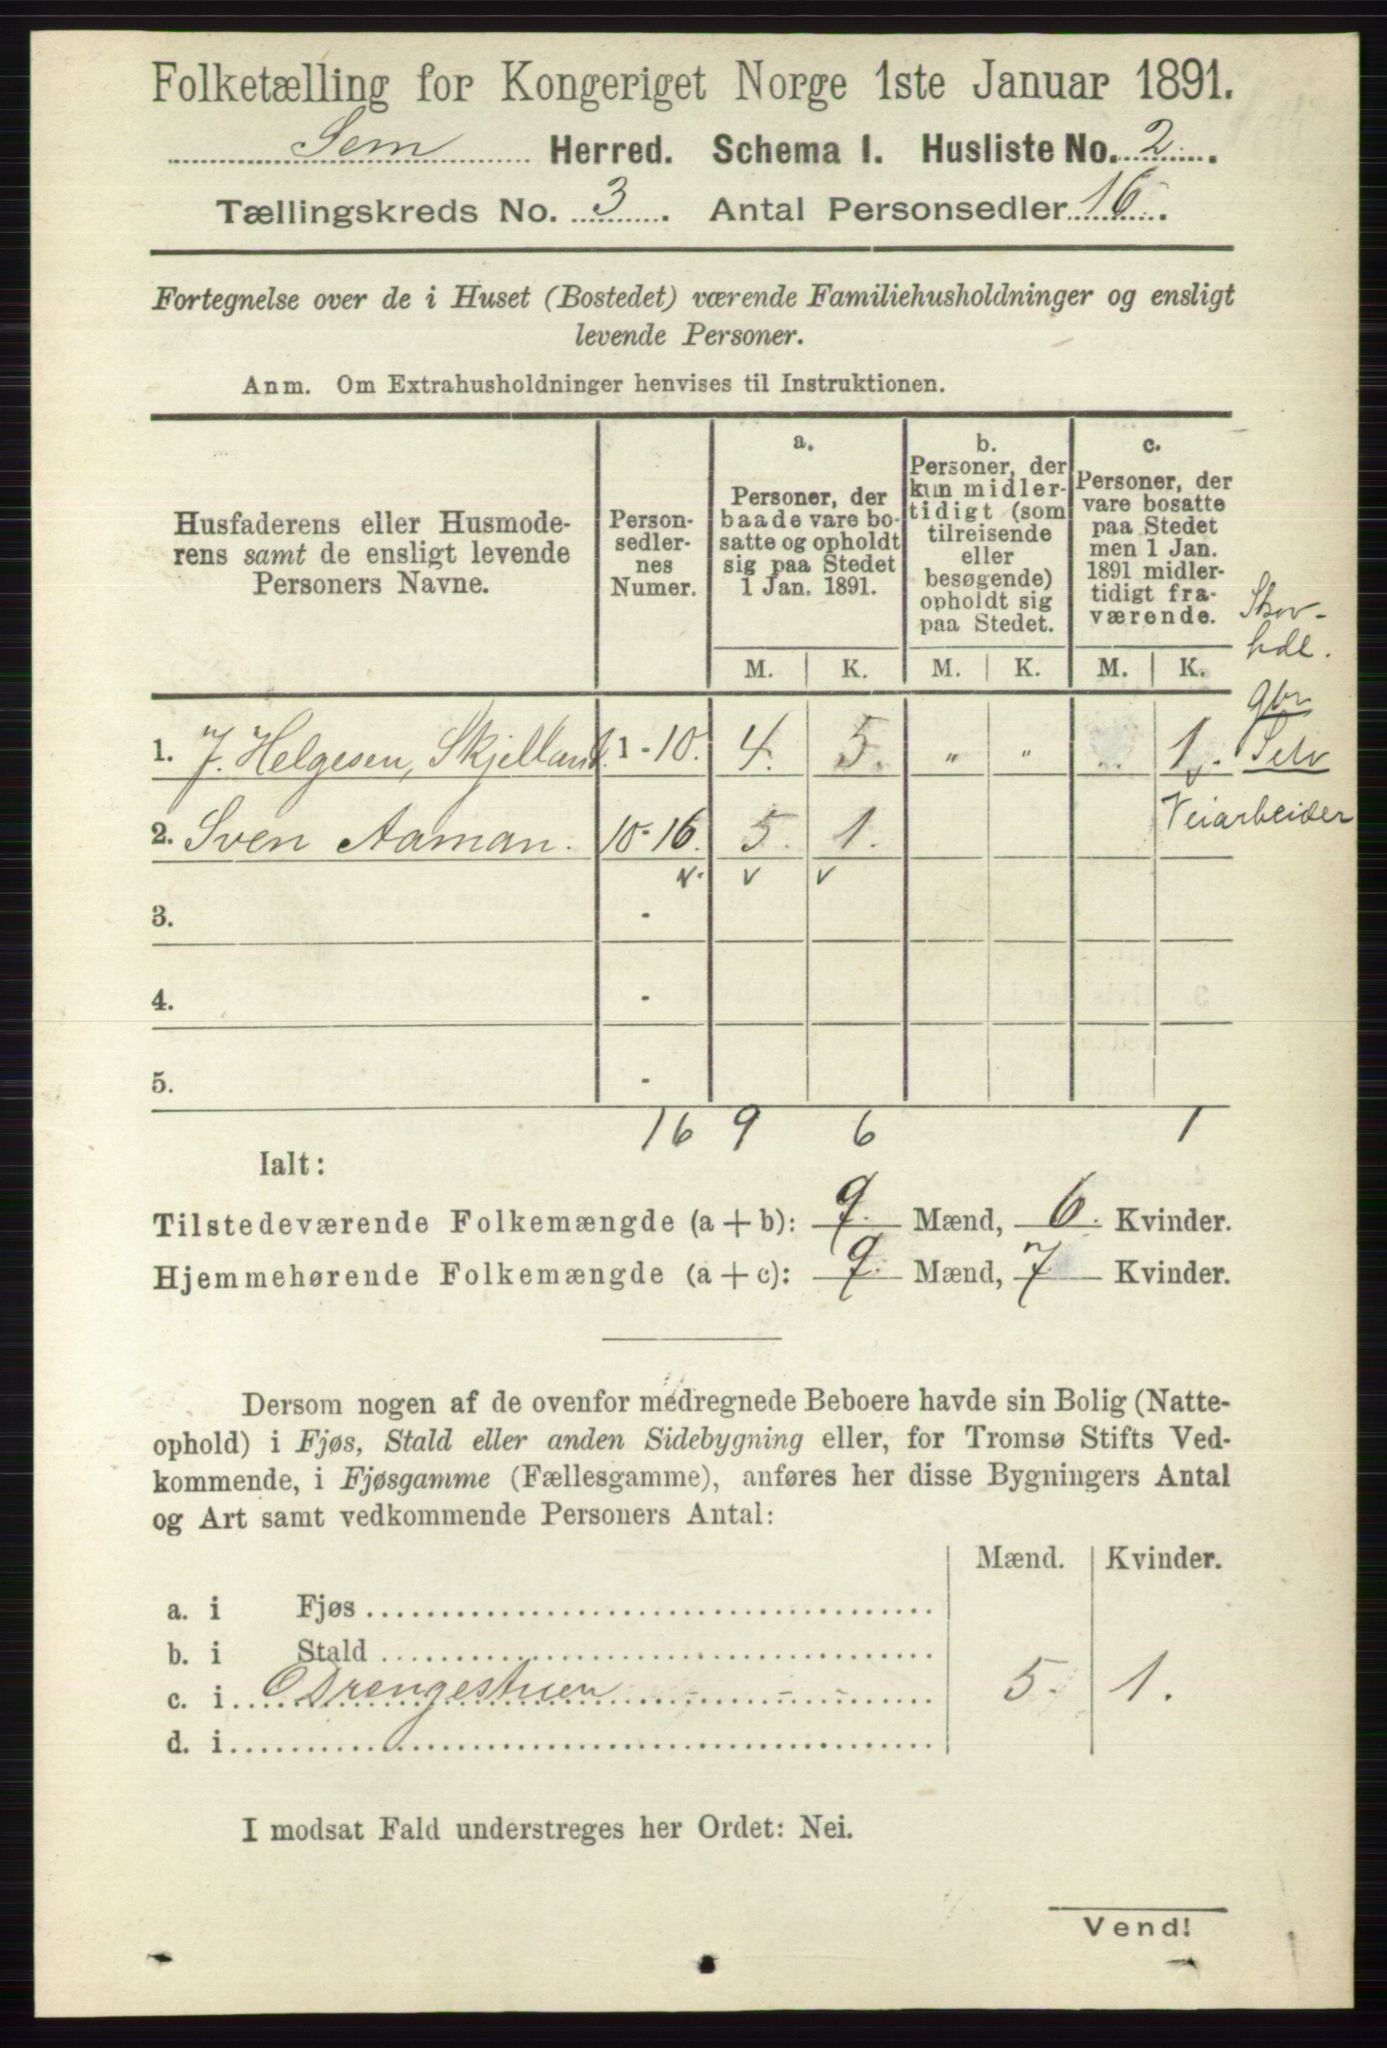 Folketælling for Kongeriget Norge 1ste Januar 1891.
Sem Herred. Schema I. Husliste No. 2.
Tællingskreds No. 3. Antal Personsedler 16.
Fortegnelse over de i Huset (Bostedet) værende Familiehusholdninger og ensligt
levende Personer.
Anm. Om Extrahusholdninger henvises til Instruktionen.
Husfaderens eller Husmode-
rens samt de ensligt levende
Personers Navne.
Person-
sedler-
nes
Numer.
a.
Personer, der
baade vare bo-
satte og opholdt
sig paa Stedet
1 Jan. 1891.
b.
Personer, der
kun midler-
tidigt (som
tilreisende
eller
besøgende)
opholdt sig
paa Stedet.
c.
Personer, der
vare bosatte
paa Stedet
men 1 Jan.
1891 midler-
tidigt fra-
værende.
Skov-
hdl.
M. K. M. K. M. K.
gbr
1. J. Helgesen, Skjelland. 1-10. 4. 5. " " 1. Selv
v
2. Sven Aaman. 10-16. 5. 1. Veiarbeider
v. v v
3. -
4. -
5. -
16 9 6 1
Ialt:
Tilstedeværende Folkemængde (a + b): 9. Mænd, 6. Kvinder.
Hjemmehørende Folkemængde (a + c): 9. Mænd, 7 Kvinder.
Dersom nogen af de ovenfor medregnede Beboere havde sin Bolig (Natte-
ophold) i Fjøs, Stald eller anden Sidebygning eller, for Tromsø Stifts Ved-
kommende, i Fjøsgamme (Fællesgamme), anføres her disse Bygningers Antal
og Art samt vedkommende Personers Antal:
Mænd. Kvinder.
a. i Fjøs
b. i Stald
c. i Drengestuen - - - 5. 1.
d. i
I modsat Fald understreges her Ordet: Nei.
Vend!